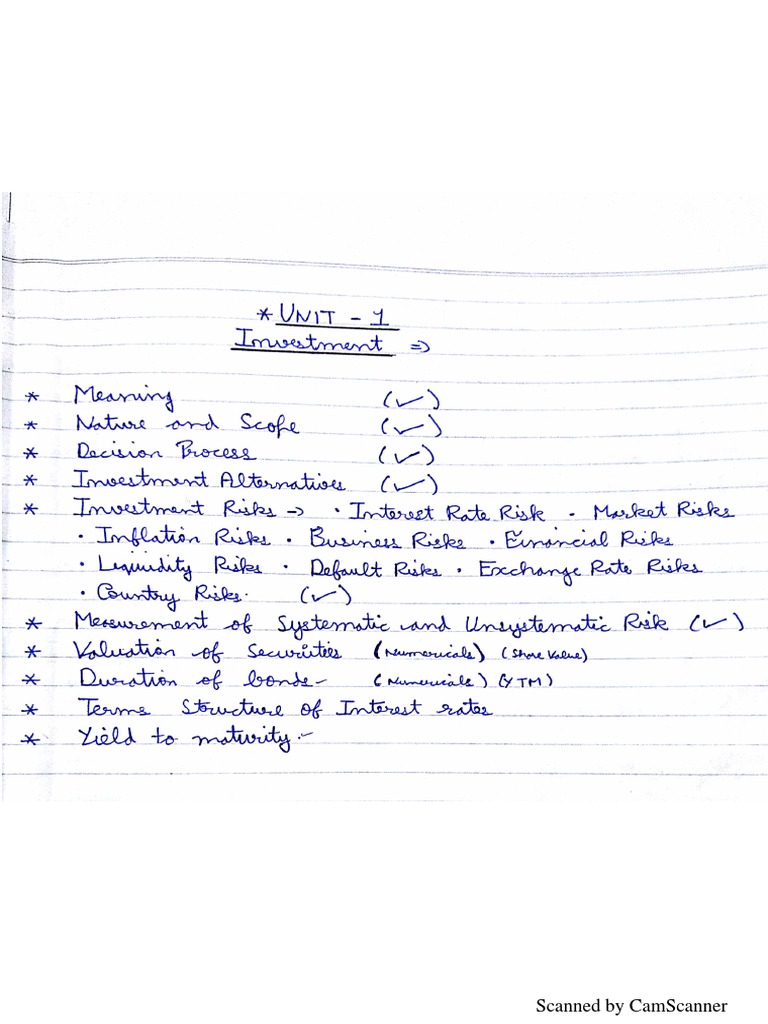 * UNIT - 1
Investment ⇒
* Meaning (✓)
* Nature and Scope (✓)
* Decision Process (✓)
* Investment Alternatives (✓)
* Investment Risks → · Interest Rate Risk · Market Risks
· Inflation Risks · Business Risks · Financial Risks
· Liquidity Risks · Default Risks · Exchange Rate Risks
· Country Risks. (✓)
* Measurement of Systematic and Unsystematic Risk (✓)
* Valuation of Securities (Numericals) (Share Value)
* Duration of bonds- (Numericals) (YTM)
* Terms Structure of Interest rates
* Yield to maturity.-
Scanned by CamScanner